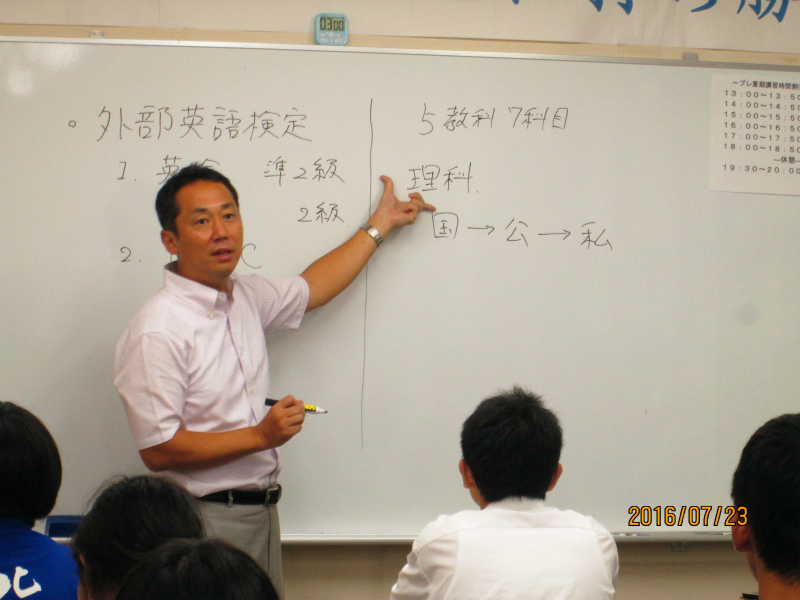 03:00
。外部英語検定
1. 英検 準2級
2級
2. C
5教科 7科目
理科.
国→公→私
～プレ夏期講習時間割
13:00～13:50
14:00～14:50
15:00～15:50
16:00～16:50
17:00～17:50
18:00～18:50
―休憩―
19:30～20:00
2016/07/23